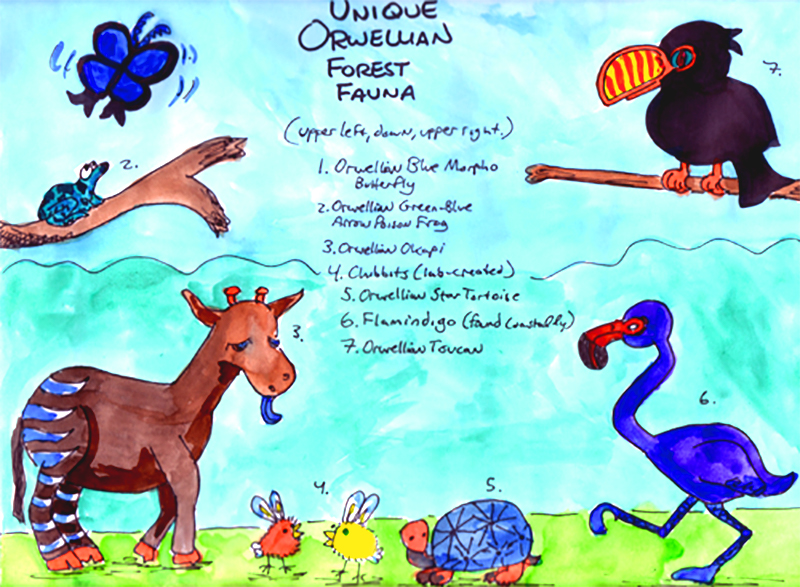 UNIQUE
ORWELLIAN
FOREST
FAUNA
(upper left, down, upper right.)
1. Orwellian Blue Morpho
Butterfly
2. Orwellian Green-Blue
Arrow Poison Frog
3. Orwellian Okapi
4. Chibbits (lab-created)
5. Orwellian Star Tortoise
6. Flamindigo (found coastally)
7. Orwellian Toucan
2.
3.
4.
5.
6.
7.